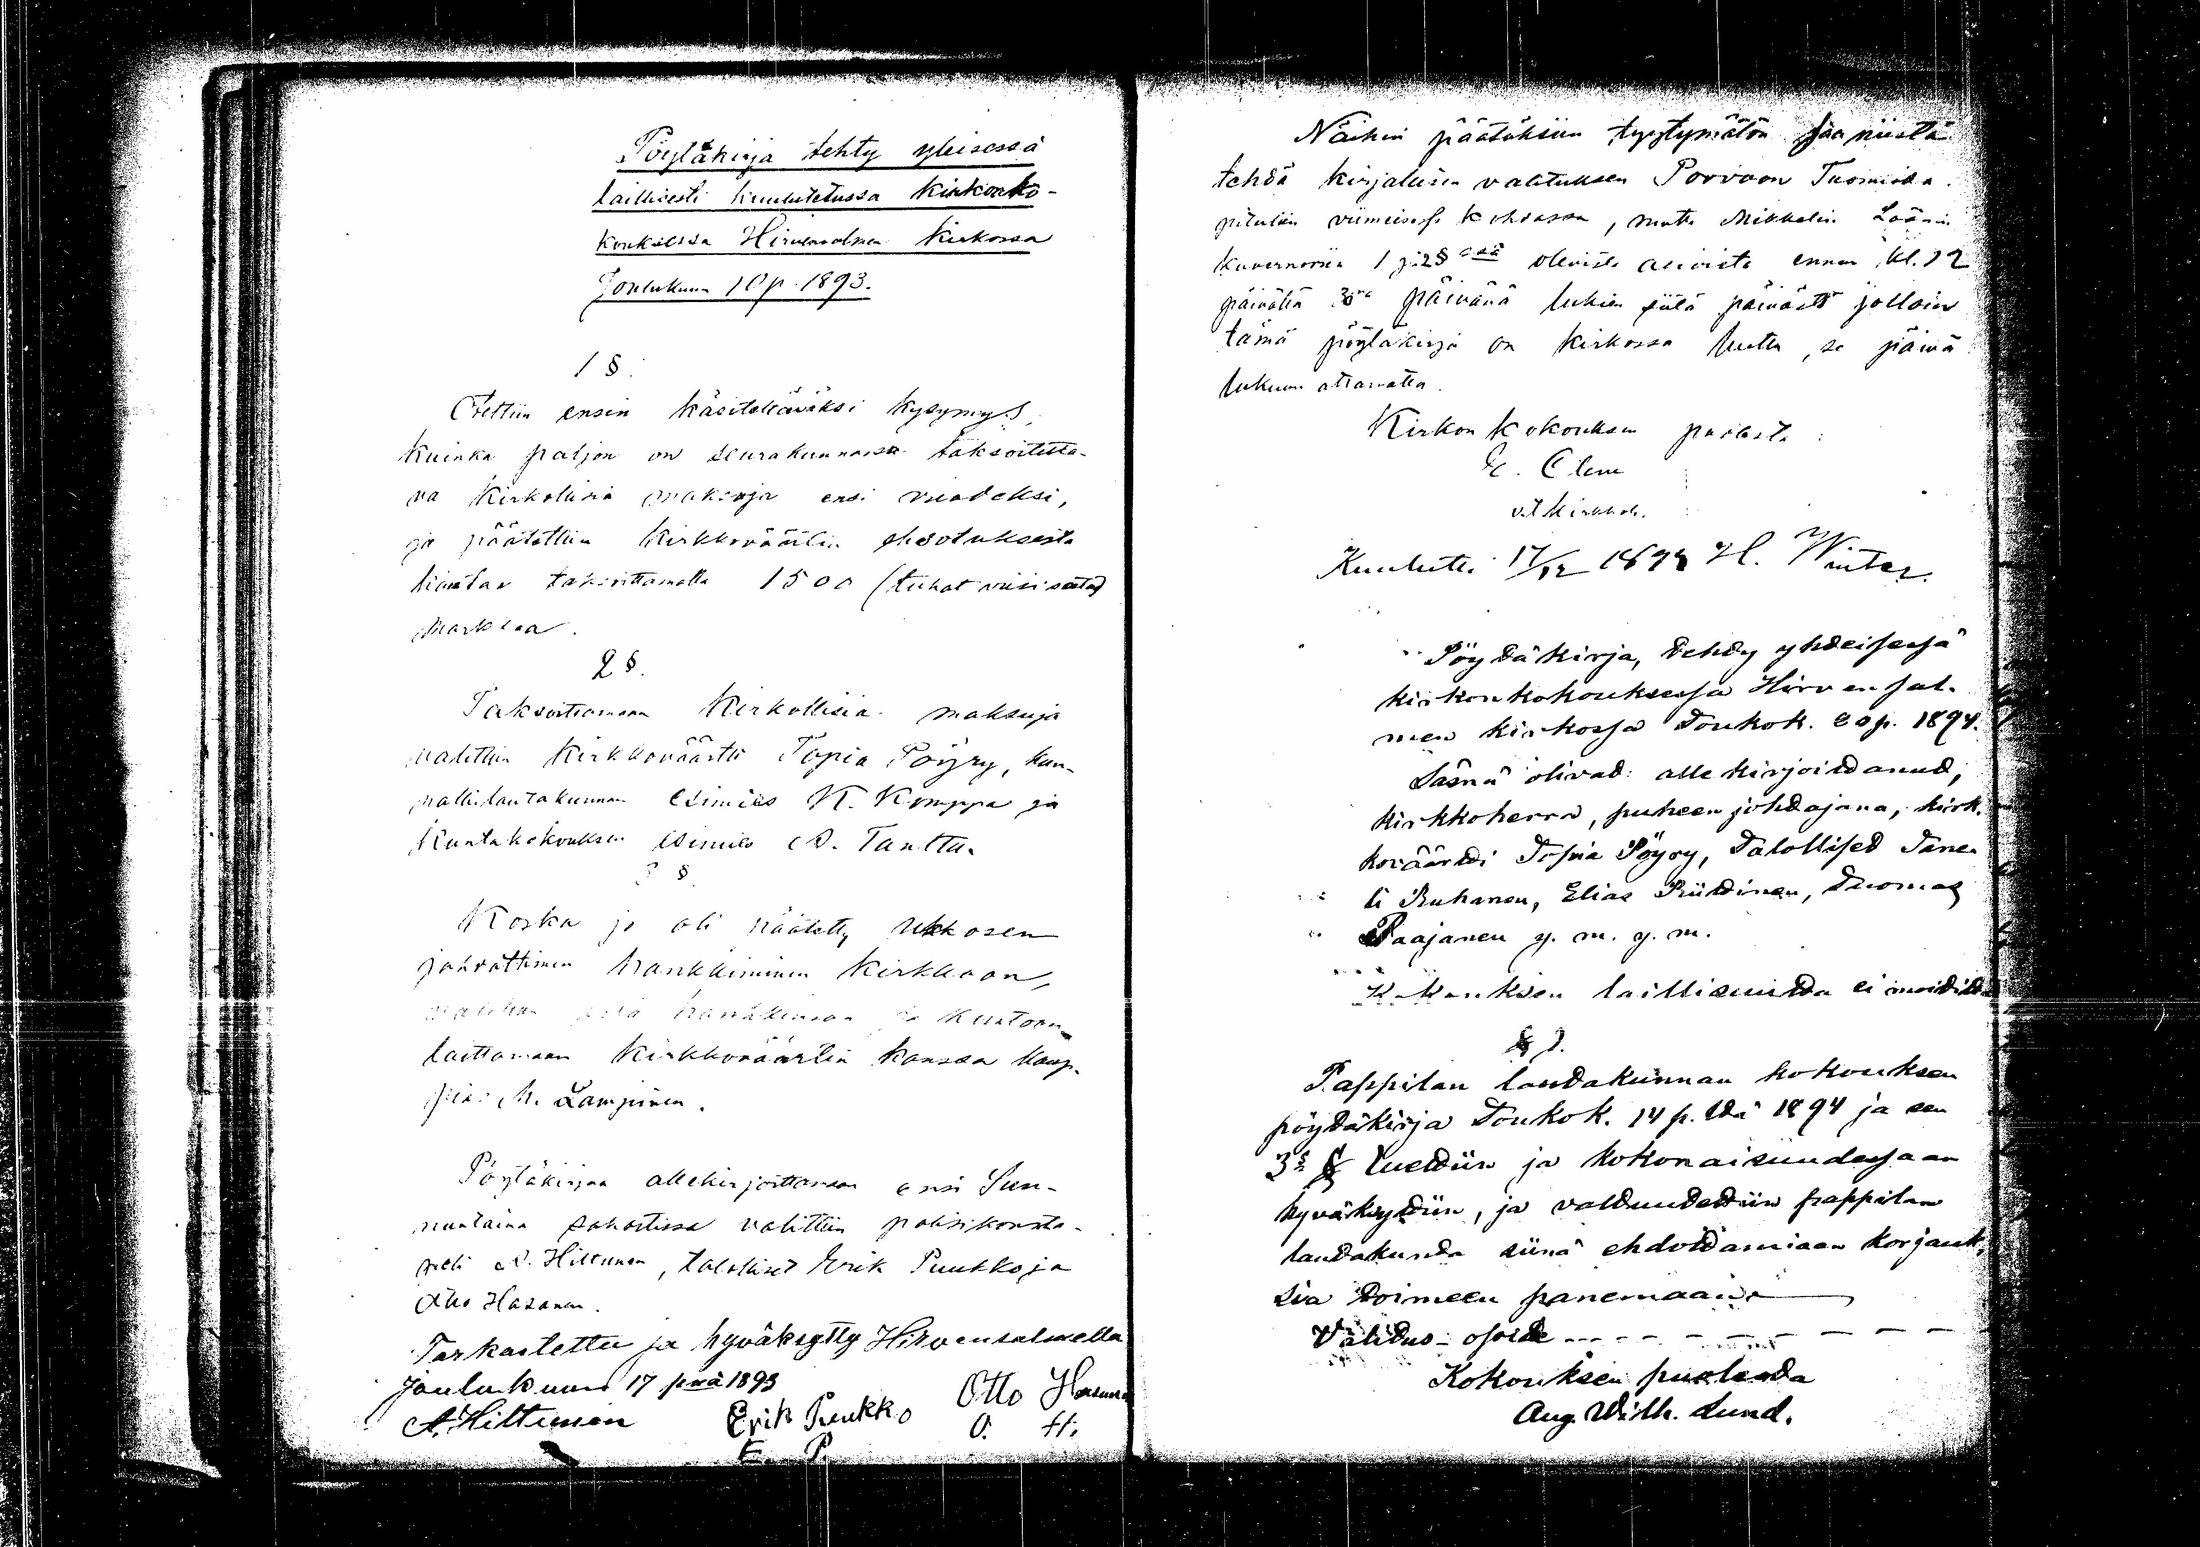 Pöytäkirja tehty yleisessä
laillisesti kuulutetussa Kirkonko-
kouksessa Hirvensalmen Kirkossa
Joulukuun 10 p. 1893.
1 §.
Otettiin ensin käsiteltäväksi kysymys,
kuinka paljon on seurakunnassa taksoitetta-
va Kirkollisia maksuja ensi vuodeksi,
ja päätettiin Kirkkoväärtin ehdotuksesta
taksoittamalla 1500 (tuhat viisi sataa)
Markkaa.
2 §.
Taksoittamaan Kirkollisia maksuja
valittiin Kirkkoväärtti Topia Pöyry, kun-
nallislautakunnan esimies K. Komppa ja
Kuntakokouksen esimies A. Tanttu.
3 §
Koska jo oli päätetty ukkosen
johdattimen hankkiminen Kirkkoon,
valittiin sitä hankkimaan ja kuntoon
laittamaan Kirkkoväärtin kanssa kaup-
pias M. Lampinen.
Pöytäkirjaa allekirjoittamaan ensi Sun-
nuntaina sakastissa valittiin poliisikonsta-
peli A. Hiltunen, talolliset Erik Puukko ja
Otto Hasanen.
Tarkastettu ja hyväksytty Hirvensalmella
Joulukuun 17 pnä 1893
A. Hiltunen Erik Puukko Otto Hasanen
E. P. O. H.
Näihin päätöksiin tyytymätön saa niistä
tehdä kirjallisen valituksen Porvoon Tuomioka-
pituliin viimeisessä kohdassa, mutta Mikkelin Läänin
Kuvernöörin 1 ja 2 §ssä olevista asioista ennen kl. 12
päivällä 30nä päivänä lukien siitä päivästä jolloin
tämä pöytäkirja on kirkossa luettu, se päivä
lukuun ottamatta.
Kirkon Kokouksen puolesta:
E. Clene
v.t. kirkkoh.
Kuulutti 17/12 1893 H. Winter.
Pöydäkirja, dehdy yhdeisessä
kirkonkokouksessa Hirvensal-
men kirkossa Doukok. 20 p. 1894.
Läsnä olivad: allekirjoidanud,
kirkkoherra, puheenjohdajana, kirk-
koväärdi Dopia Pöyry, Dalollised Dane-
li Ruhanen, Elias Riidinen, Duomas
Paajanen y. m. y. m.
Kokouksen laillisuudda ei moididdu
§ 1.
Pappilan laudakunnan kokouksen
pöydäkirja Doukok. 14 p. ldä 1894 ja sen
3 § lueddiin ja kokonaisuudessaan
hyväksyddiin, ja valduudeddiin pappilan
laudakunda siinä ehdoddamiaan korjauk-
sia doimeen panemaan.
Validus-osode
Kokouksen puolesda
Aug. Wilh. Lund.